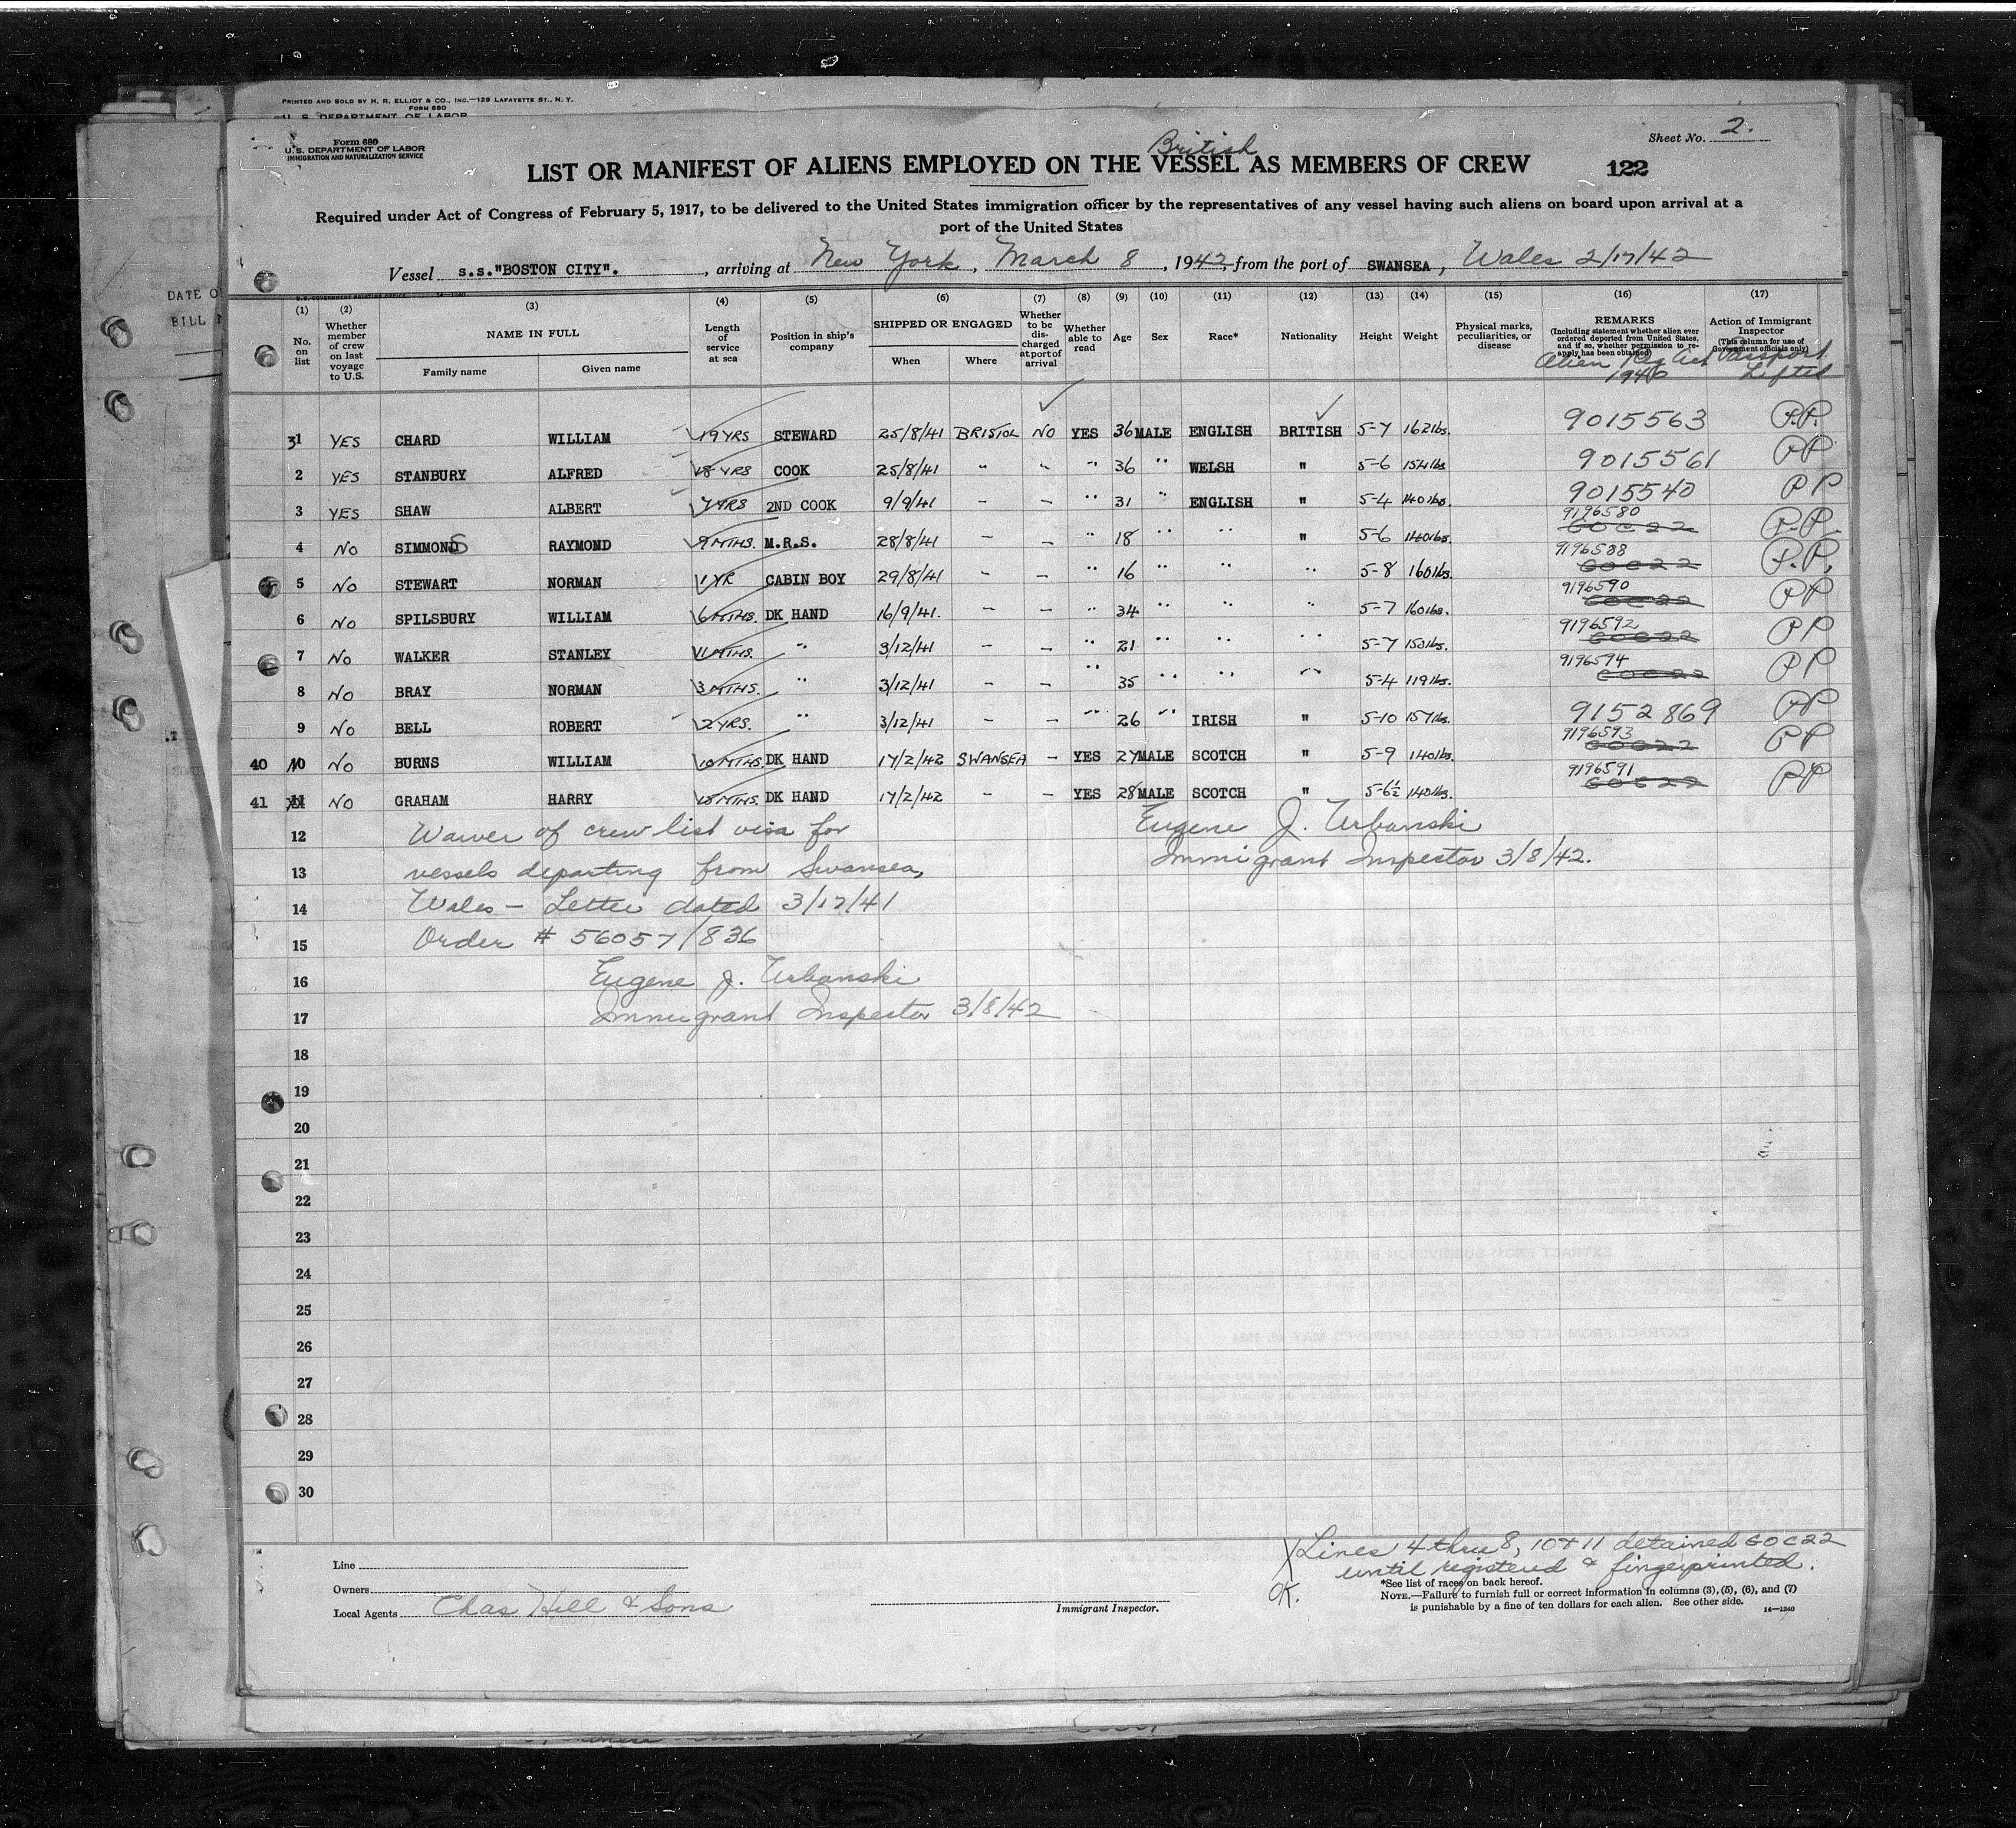 PRINTED AND SOLD BY H. R. ELLIOT & CO., INC.—129 LAFAYETTE ST., N. Y.
FORM 680
U. S. DEPARTMENT OF LABOR
Form 680
U.S. DEPARTMENT OF LABOR
IMMIGRATION AND NATURALIZATION SERVICE
Sheet No. 2.
British
LIST OR MANIFEST OF ALIENS EMPLOYED ON THE VESSEL AS MEMBERS OF CREW 122
Required under Act of Congress of February 5, 1917, to be delivered to the United States immigration officer by the representatives of any vessel having such aliens on board upon arrival at a
port of the United States
Vessel s.s."BOSTON CITY". , arriving at New York , March 8 , 1942, from the port of SWANSEA, Wales 2/17/42
DATE O
BILL
(1) (2) (3) (4) (5) (6) (7) (8) (9) (10) (11) (12) (13) (14) (15) (16) (17)
No. on list
Whether member of crew on last voyage to U.S.
NAME IN FULL
Family name Given name
Length of service at sea
Position in ship's company
SHIPPED OR ENGAGED
When Where
Whether to be discharged at port of arrival
Whether able to read
Age Sex Race* Nationality Height Weight
Physical marks, peculiarities, or disease
REMARKS
(Including statement whether alien ever ordered deported from United States, and if so, whether permission to reapply has been obtained)
Alien Reg Act 1940
Action of Immigrant Inspector
(This column for use of Government officials only)
Passport Lifted
31 YES CHARD WILLIAM 19 YRS STEWARD 25/8/41 BRISTOL NO YES 36 MALE ENGLISH BRITISH 5-7 162lbs. 9015563 P.P.
2 YES STANBURY ALFRED 18 YRS COOK 25/8/41 " " " 36 " WELSH " 5-6 154lbs 9015561 PP
3 YES SHAW ALBERT 7 YRS 2ND COOK 9/9/41 - - " 31 " ENGLISH " 5-4 140lbs. 9015540 PP
4 NO SIMMONDS RAYMOND 9 MTHS. M.R.S. 28/8/41 - - " 18 " " " 5-6 140lbs. 9196580 GOC22 P.P.
5 NO STEWART NORMAN 1 YR CABIN BOY 29/8/41 - - " 16 " " " 5-8 160lbs. 9196588 GOC22 P.P.
6 NO SPILSBURY WILLIAM 6 MTHS. DK HAND 16/9/41. - - " 34 " " " 5-7 160lbs. 9196590 GOC22 PP
7 NO WALKER STANLEY 11 MTHS. " 3/12/41 - - " 21 " " " 5-7 153lbs. 9196592 GOC22 PP
8 NO BRAY NORMAN 3 MTHS. " 3/12/41 - - " 35 " " " 5-4 119lbs. 9196594 GOC22 PP
9 NO BELL ROBERT 2 YRS. " 3/12/41 - - " 26 " IRISH " 5-10 157lbs. 9152869 PP
40 10 NO BURNS WILLIAM 10 MTHS. DK HAND 17/2/42 SWANSEA - YES 27 MALE SCOTCH " 5-9 140lbs. 9196593 GOC22 PP
41 11 NO GRAHAM HARRY 18 MTHS. DK HAND 17/2/42 - - YES 28 MALE SCOTCH " 5-6½ 140lbs. 9196591 GOC22 PP
12 Waiver of crew list visa for Eugene J. Urbanski
13 vessels departing from Swansea, Immigrant Inspector 3/8/42.
14 Wales - Letter dated 3/17/41
15 Order # 56057/836
16 Eugene J. Urbanski
17 Immigrant Inspector 3/8/42
18
19
20
21
22
23
24
25
26
27
28
29
30
Line
Owners
Local Agents Chas Hill & Sons
Immigrant Inspector.
X Lines 4 thru 8, 10 + 11 detained GOC22
until registered & fingerprinted.
OK.
*See list of races on back hereof.
NOTE.—Failure to furnish full or correct information in columns (3), (5), (6), and (7)
is punishable by a fine of ten dollars for each alien. See other side. 14—1240